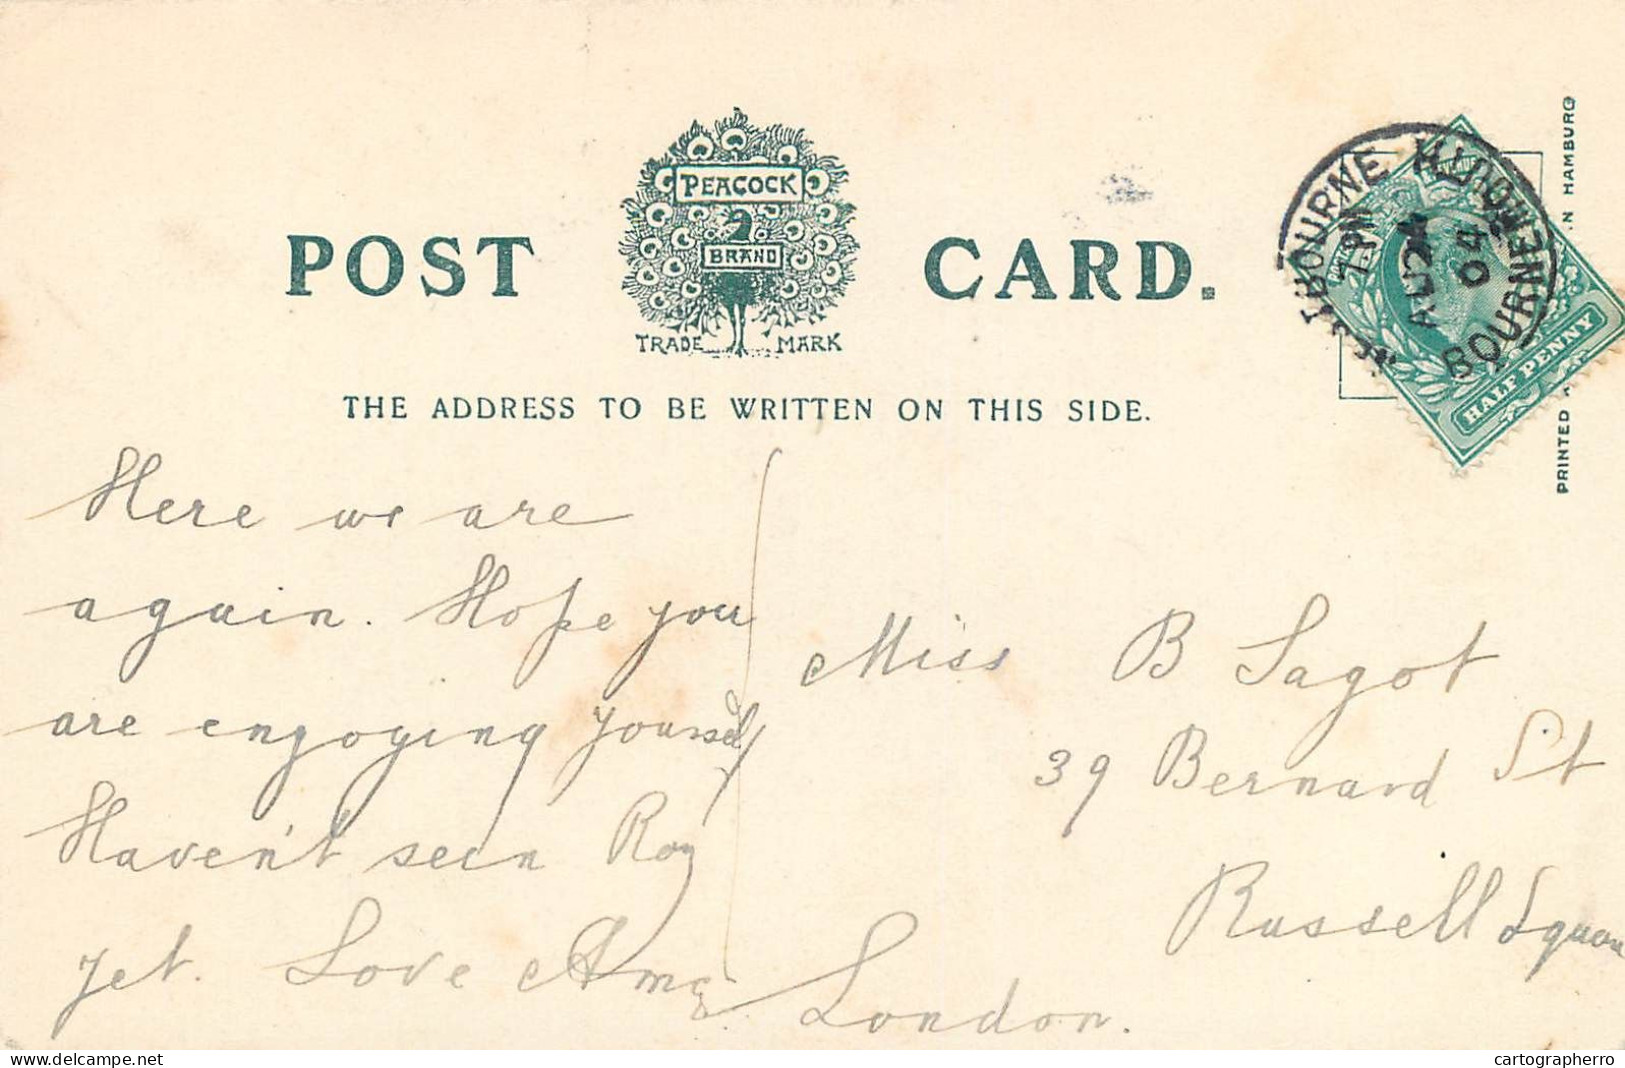 POST CARD.
PEACOCK
BRAND
TRADE MARK
THE ADDRESS TO BE WRITTEN ON THIS SIDE.
WESTBOURNE BOURNEMOUTH
7.PM
AU 24
04
HALF PENNY
PRINTED
N HAMBURG
Here we are
again. Hope you
are enjoying yourself
Haven't seen Roy
yet. Love Amy
Miss B Sagot
39 Bernard St
Russell Square
London.
cartographerro